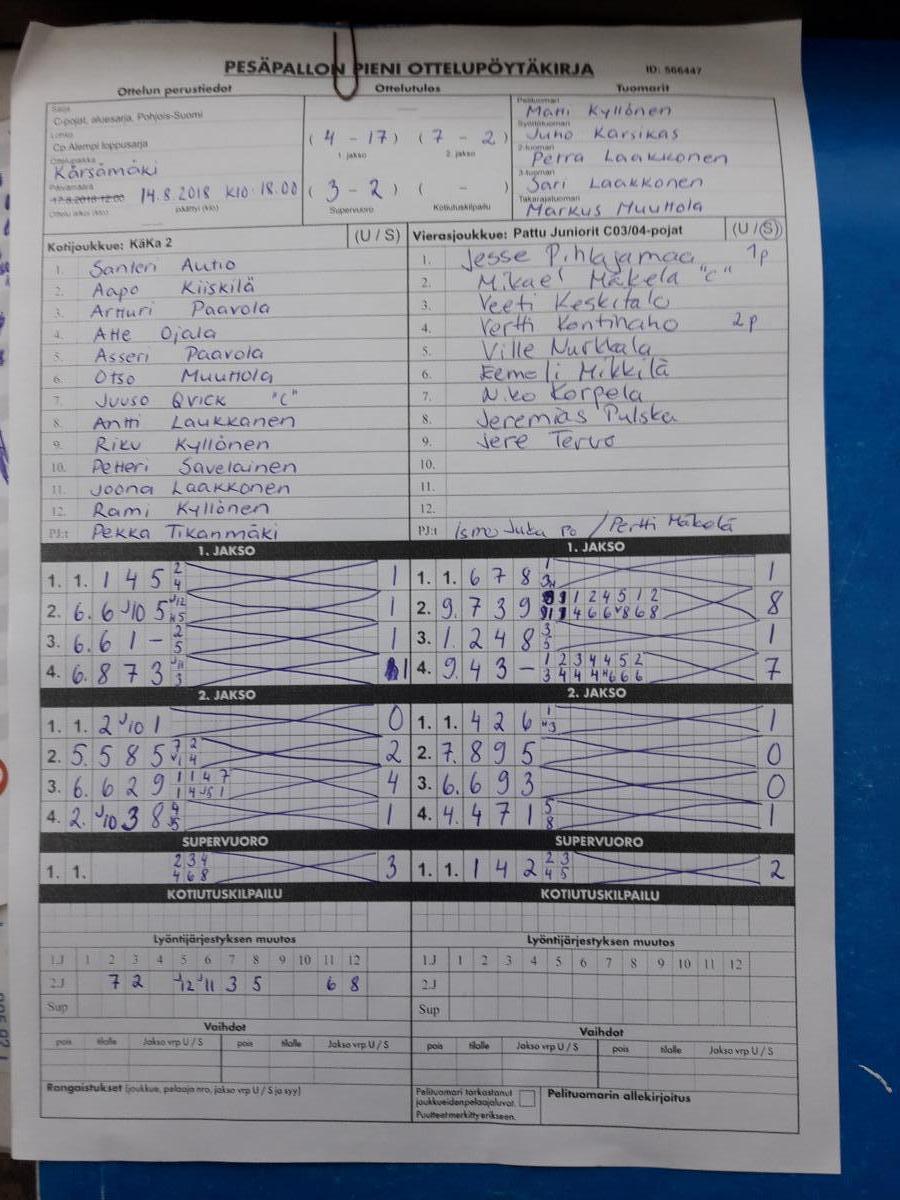 PESÄPALLON PIENI OTTELUPÖYTÄKIRJA ID: 566447
Ottelun perustiedot Ottelutulos Tuomarit
Sarja
C-pojat, aluesarja, Pohjois-Suomi
Lohko
Cp Alempi loppusarja
Ottelupaikka
Kärsämäki
Päivämäärä
17.8.2018 12:00 14.8.2018 KLO 18.00
Ottelu alkoi (klo) päättyi (klo)
(4 - 17) (7 - 2)
1. jakso 2. jakso
(3 - 2) ( - )
Supervuoro Kotiutuskilpailu
Pelituomari
Matti Kyllönen
Syöttötuomari
Juho Karsikas
2-tuomari
Petra Laakkonen
3-tuomari
Sari Laakkonen
Takarajatuomari
Markus Muuttola
Kotijoukkue: KäKa 2 (U / S)
1. Santeri Autio
2. Aapo Kiiskilä
3. Artturi Paavola
4. Atte Ojala
5. Asseri Paavola
6. Otso Muuttola
7. Juuso Qvick "C"
8. Antti Laukkanen
9. Riku Kyllönen
10. Petteri Savelainen
11. Joona Laakkonen
12. Rami Kyllönen
PJ:t Pekka Tikanmäki
Vierasjoukkue: Pattu Juniorit C03/04-pojat (U / S)
1. Jesse Pihlajamaa 1p
2. Mikael Mäkelä "C"
3. Veeti Keskitalo
4. Vertti Kontinaho 2p
5. Ville Nurkkala
6. Eemeli Mikkilä
7. Niko Korpela
8. Jeremias Pulska
9. Jere Tervo
10.
11.
12.
PJ:t Ismo Juka Po / Pertti Mäkelä
1. JAKSO
1. 1. 1 4 5 2 4 1
2. 6. 6 J10 5 J12 N5 1
3. 6. 6 1 - 2 5 1
4. 6. 8 7 3 J11 3 1
2. JAKSO
1. 1. 2 J10 1 0
2. 5. 5 8 5 7 2 J1 4 2
3. 6. 6 2 9 1 1 4 7 1 4 J5 1 4
4. 2. J10 3 8 4 J5 1
SUPERVUORO
1. 1. 2 3 4 4 6 8 3
KOTIUTUSKILPAILU
1. JAKSO
1. 1. 6 7 8 1 1
2. 9. 7 3 9 8
3. 1. 2 4 8 3 5 1
4. 9. 4 3 - 1 2 3 4 4 5 2 3 4 4 4 N6 6 6 7
2. JAKSO
1. 1. 4 2 6 1 N3 1
2. 7. 8 9 5 0
3. 6. 6 9 3 0
4. 4. 4 7 1 5 8 1
SUPERVUORO
1. 1. 1 4 2 2 3 4 5 2
KOTIUTUSKILPAILU
Lyöntijärjestyksen muutos
1.J 1 2 3 4 5 6 7 8 9 10 11 12
2.J 7 2 J12 J11 3 5 6 8
Sup
Vaihdot
pois tilalle Jakso vrp U / S pois tilalle Jakso vrp U / S
Lyöntijärjestyksen muutos
1.J 1 2 3 4 5 6 7 8 9 10 11 12
2.J
Sup
Vaihdot
pois tilalle Jakso vrp U / S pois tilalle Jakso vrp U / S
Rangaistukset (joukkue, pelaaja nro, jakso vrp U / S ja syy)
Pelituomari tarkastanut
joukkueiden pelaajaluvat.
Puutteet merkitty erikseen.
Pelituomarin allekirjoitus